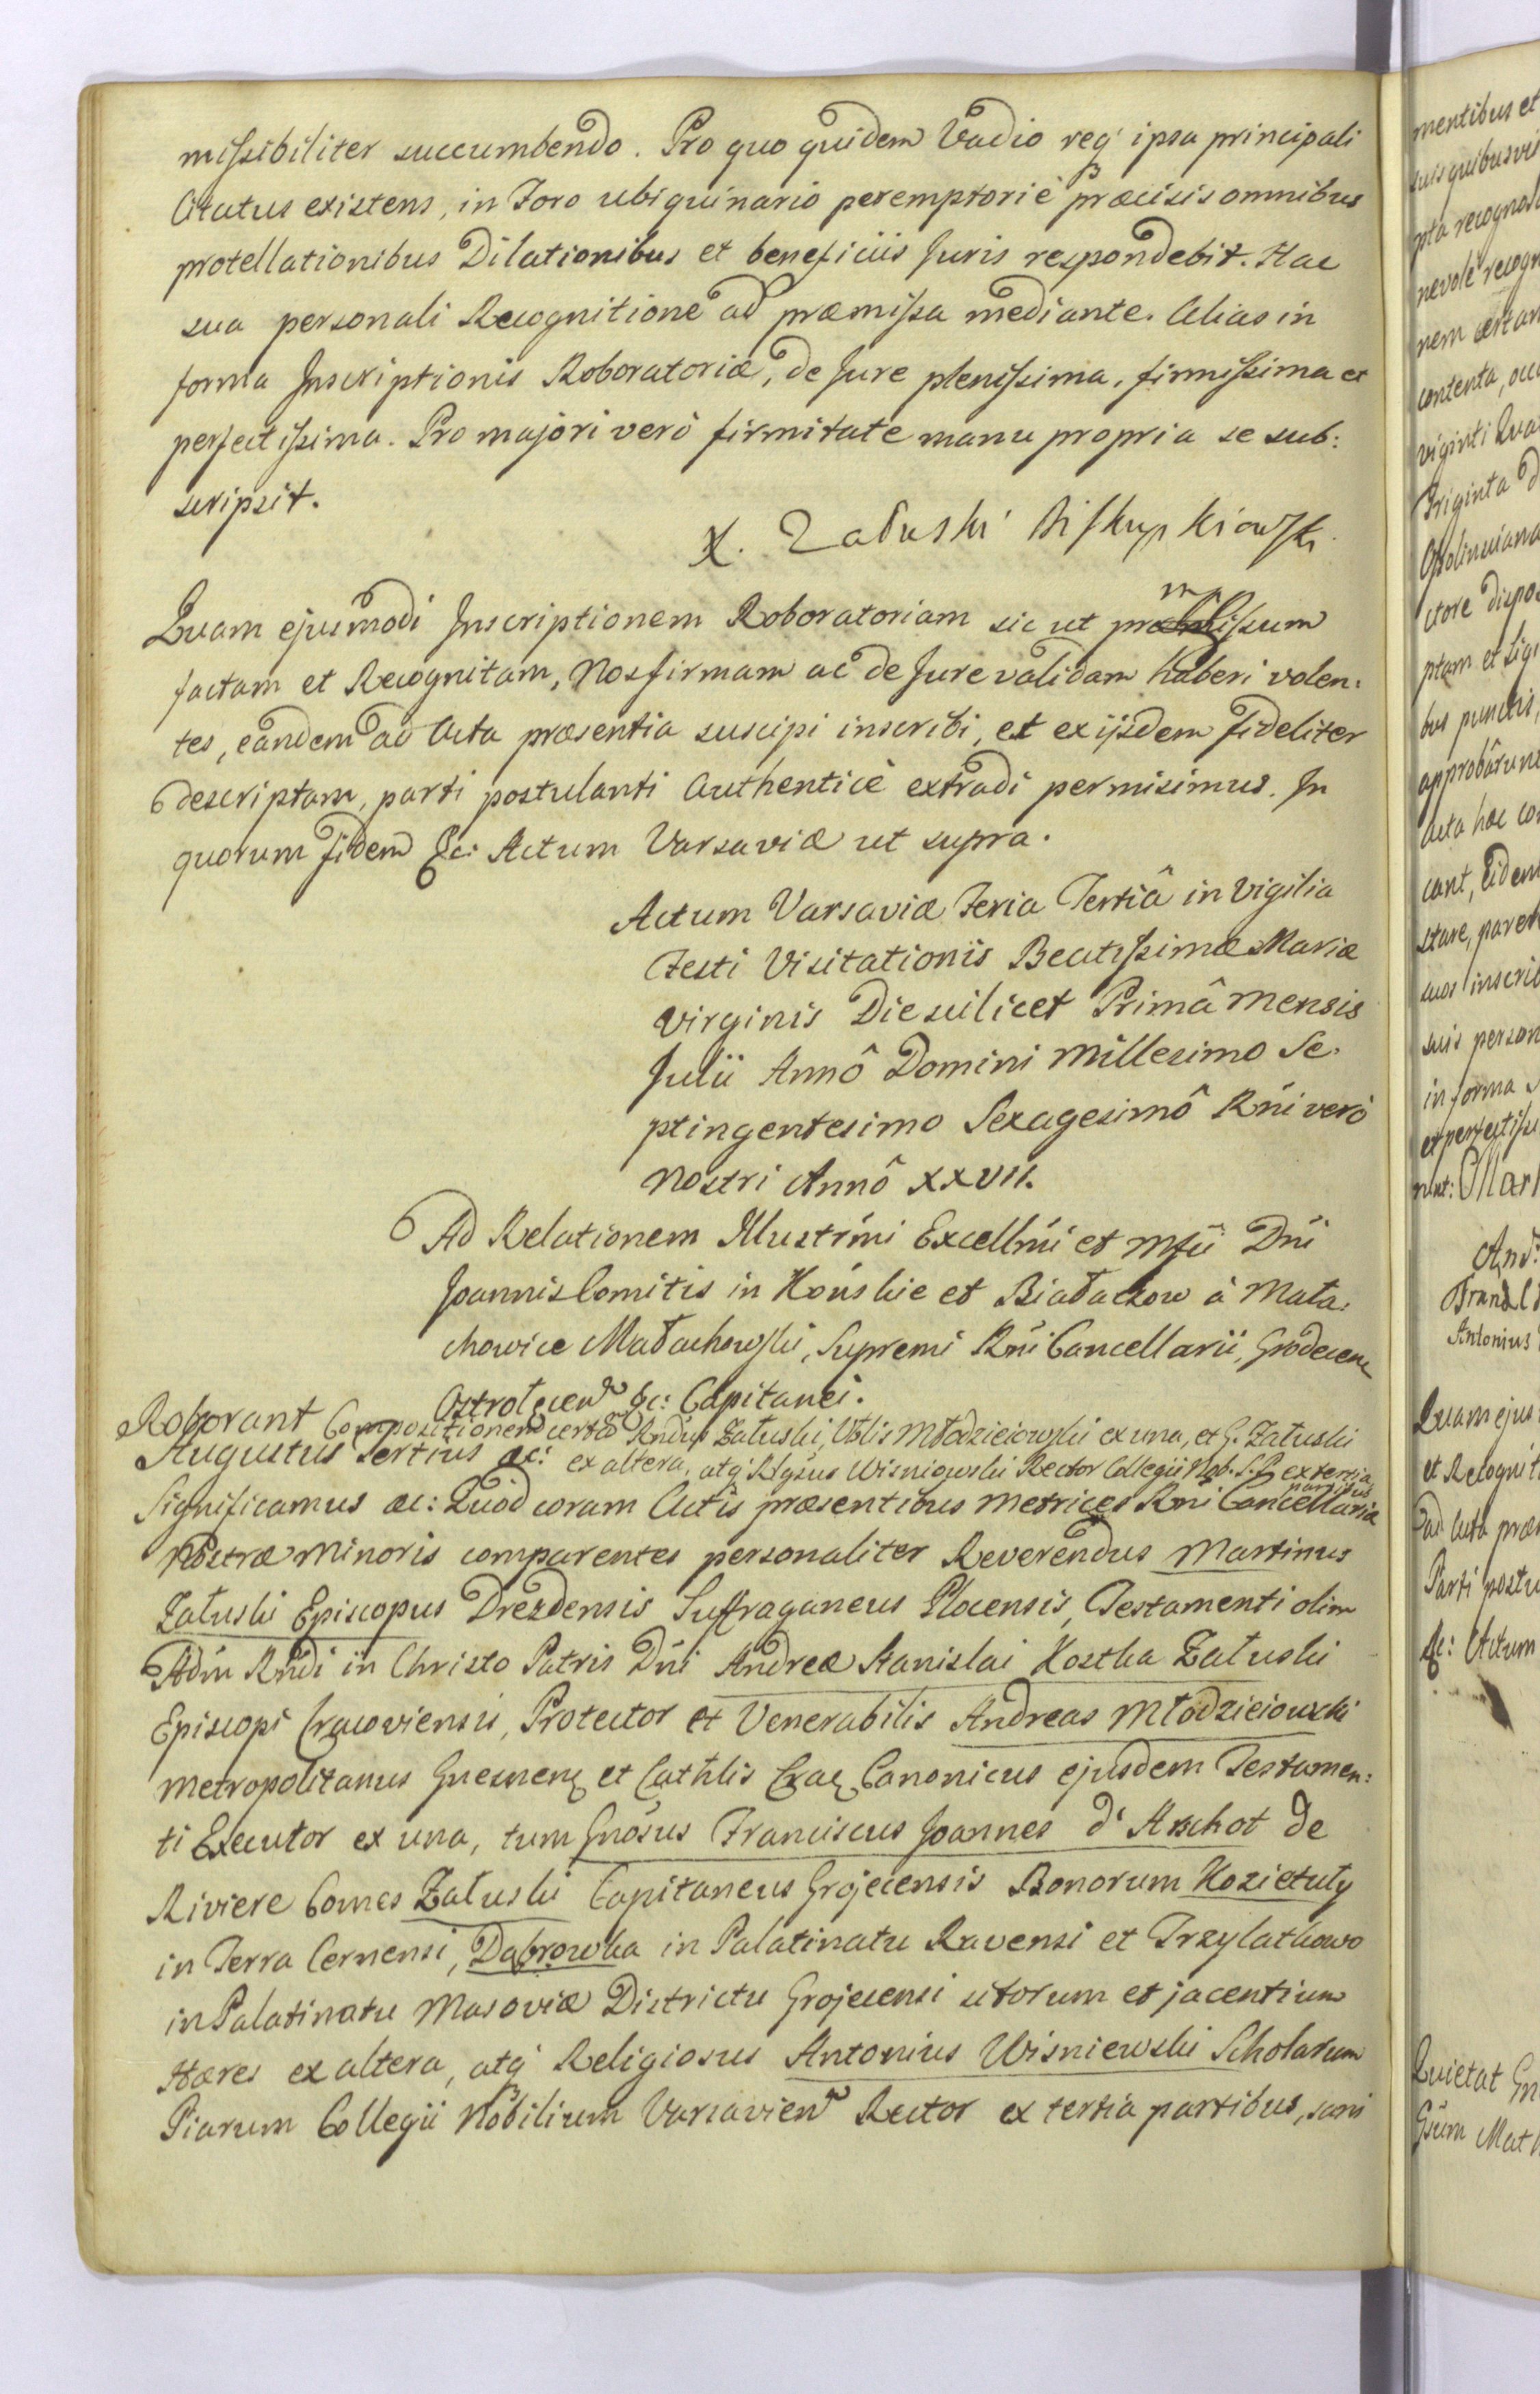 missibiliter succumbendo. Pro quo quidem Vadio req́ ipsa principali
Citatus existens, in Foro ubiquinario peremptoriè præcisis omnibus
protellationibus Dilationibus et beneficiis Juris respondebit. Hac
sua personali Recognitione ad præmissa mediante. Alias in
forma Inscriptionis Roboratoriæ, de Jure plenissima, firmissima et
perfectissima. Pro majori verò firmitate manu propria se sub:
scripsit.
X. Załuski Biskup Kiowski
Quam ejusmodi Inscriptionem Roboratoriam sic ut præmissum
factam et Recognitam, Nos firmam ac de Jure validam haberi volen:
tes, eandem ad Acta præsentia suscipi inscribi, et ex iisdem fideliter
descriptam, parti postulanti Authenticè extradi permisimus. In
quorum fidem &c: Actum Varsaviæ ut supra.
Actum Varsaviæ Feria Tertiâ in Vigilia
Festi Visitationis Beatissimæ Mariæ
Virginis Die scilicet Primâ Mensis
Julii Annô Domini Millesimo Se:
ptingentesimo Sexagesimô Rńi verò
Nostri Annô XXVII.
Ad Relationem Illustrńi Excellńi et Mfci Dńi
Joannis Comitis in Końskie et Białaczow à Mała:
chowice Małachowski, Supremi Rńi Cancellarii, Grodecen
Ostrołęcen &c: Capitanei.
Roborant Compositionem certæ Rndus Załuski, Vblis Młodzieiowski ex una, et G. Załuski
ex altera, atq́ Rlgsus Wisniowski Rector Collegii Nob. S.P. ex tertia
partibus
Augustus Tertius &c:
Significamus &c: Quod coram Actis præsentibus Metrices Rńi Cancellariæ
Nostræ Minoris comparentes personaliter Reverendus Martinus
Załuski Episcopus Drezdensis Suffraganeus Plocensis, Testamenti olim
Adm Rńdi in Christo Patris Dńi Andreæ Stanislai Kostka Załuski
Episcopi Cracoviensis, Protector et Venerabilis Andreas Młodzieiowski
Metropolitanus Gnesnen et Cathlis Crac Canonicus ejusdem Testamen:
ti Executor ex una, tum Gnosus Franciscus Joannes d'Arschot de
Riviere Comes Załuski Capitaneus Grojecensis Bonorum Kozietuły
in Terra Cernensi, Dąbrowka in Palatinatu Ravensi et Trzylatkowo
in Palatinatu Masoviæ Districtu Grojecensi sitorum et jacentium
Hæres ex altera, atq́ Religiosus Antonius Wisniewski Scholarum
Piarum Collegii Nobilium Varsavien Rector ex tertia partibus, sani